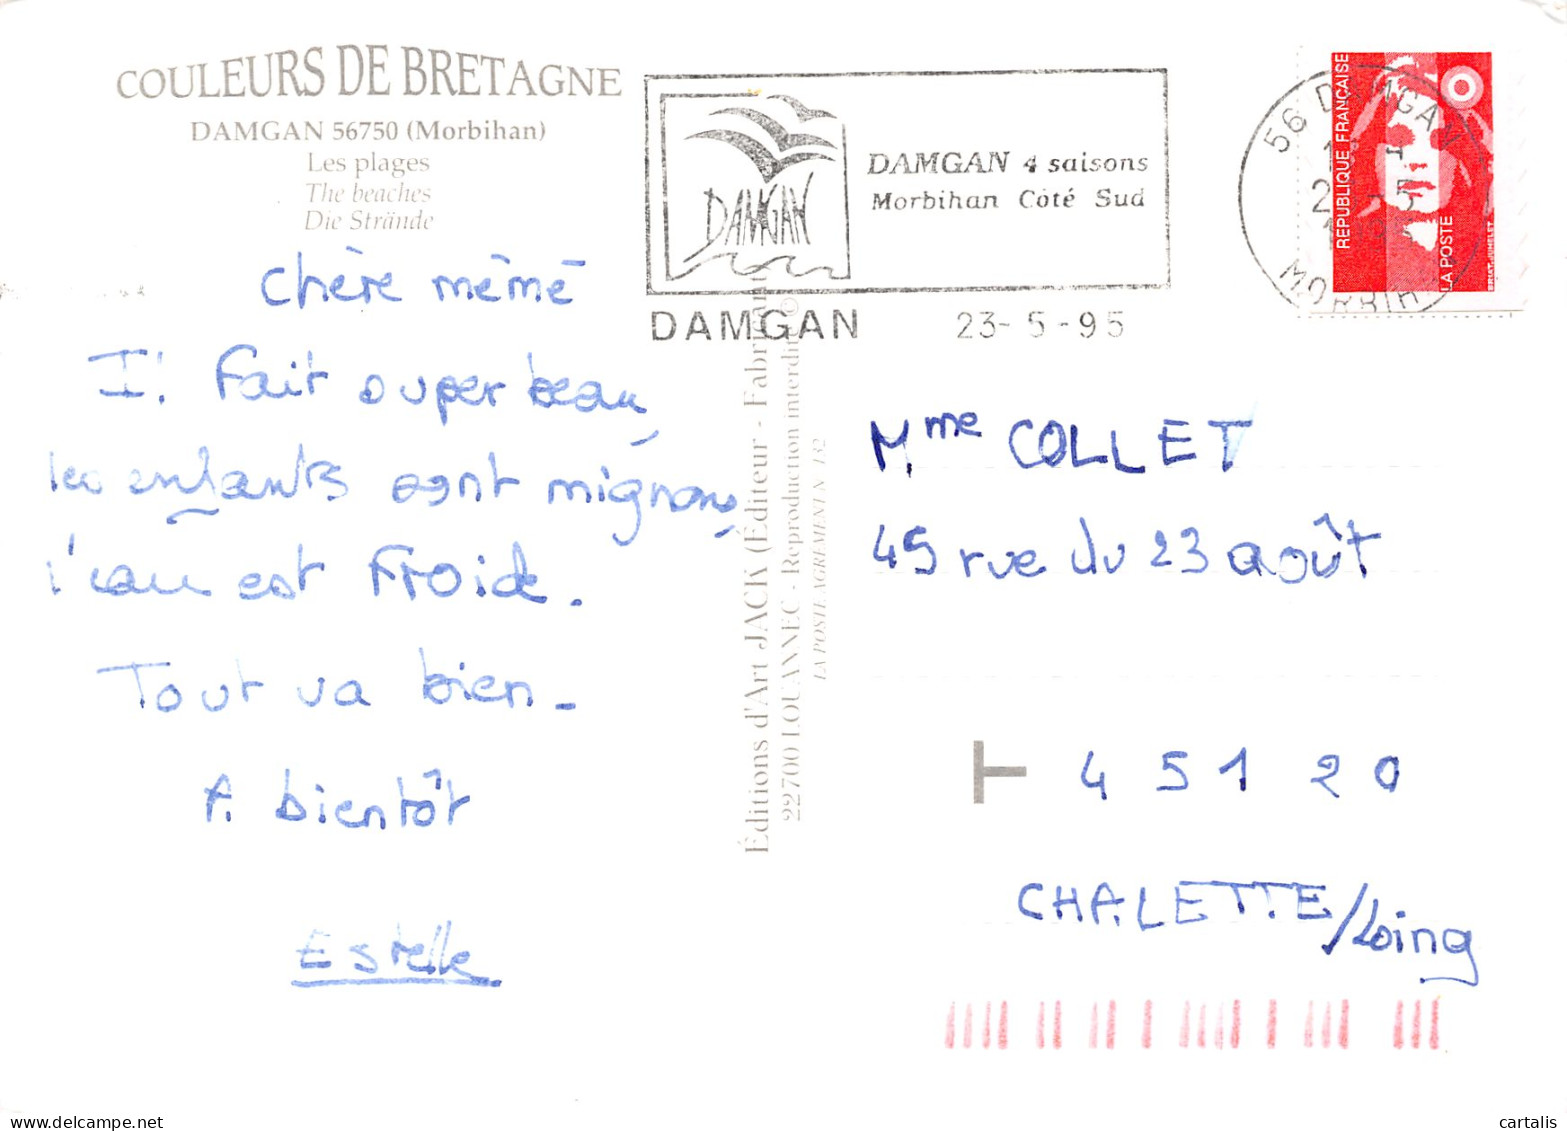 COULEURS DE BRETAGNE
DAMGAN 56750 (Morbihan)
Les plages
The beaches
Die Strände
Chère mémé
Il Fait super beau,
les enfants sont mignons,
l'eau est Froide.
Tout va bien -
A bientôt
Estelle
Éditions d'Art JACK (Éditeur - Fabricant
22700 LOUANNEC - Reproduction interdite ©
LA POSTE AGREMENT N° 132
DAMGAN
DAMGAN 4 saisons
Morbihan Côté Sud
DAMGAN 23-5-95
56 DAMGAN
MORBIH
RÉPUBLIQUE FRANÇAISE
LA POSTE
Mme COLLET
45 rue du 23 août
45120
CHALETTE/Loing
delcampe.net
cartalis